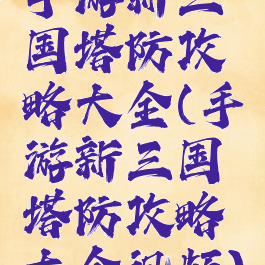 手游新三
国塔防攻
略大全(手
游新三国
塔防攻略
大全视频)